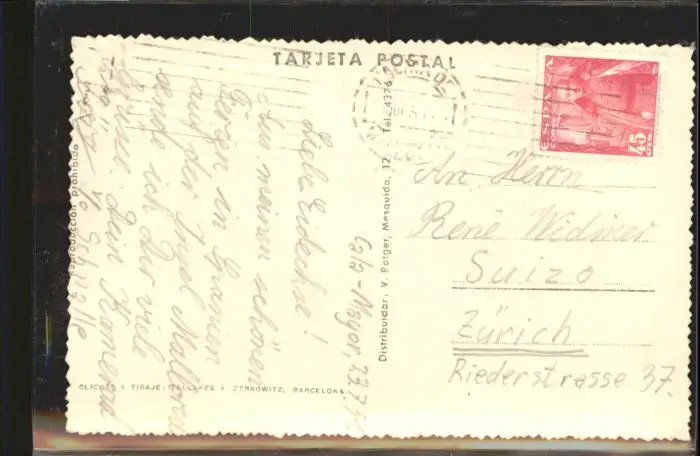 TARJETA POSTAL
ESPAÑA
CORREOS
45
CTS
An Herrn
René Widmer
Suizo
Zürich
Riederstrasse 37.
Distribuidor: V. Porger, Mesquida, 12 Tel. 4376
Cala-Mayor, 22.7.
Liebe Eidechse!
Aus meinen schönen
Ferien in Spanien
auf der Insel Mallorca
sende ich Dir viele
Grüsse. Dein Kamerad
reproducción prohibida
CLICHÉS Y TIRAJE: GALLARES Y ZERKOWITZ, BARCELONA